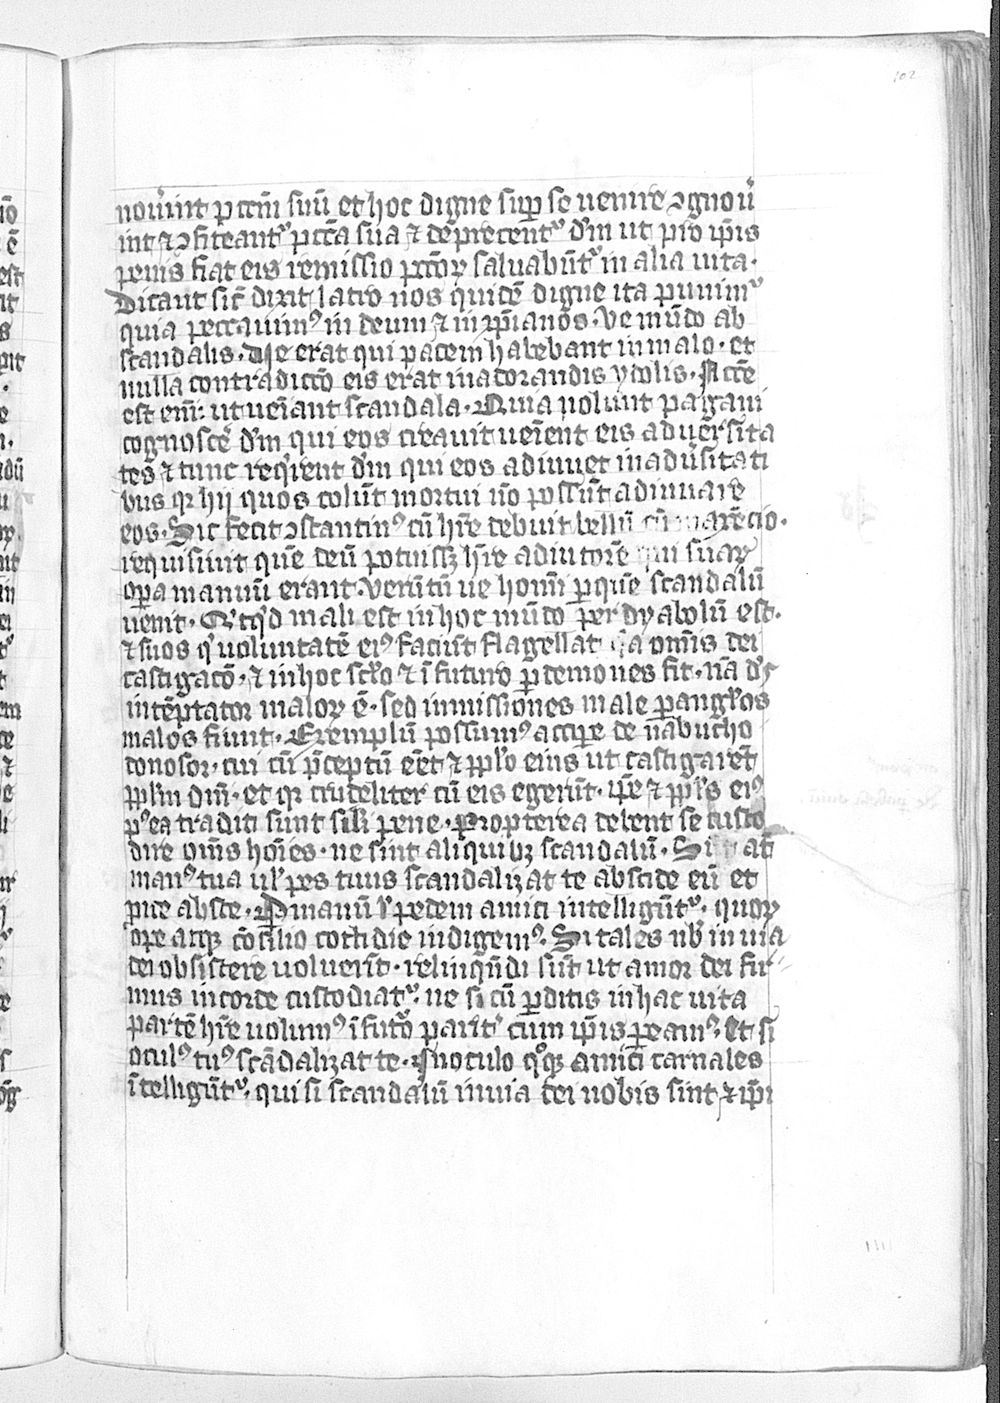 102
nouerint pctm̄ suū et hoc digne sup̱ se uenire ꝯgnou̓
int ⁊ ꝯfiteant᷑ pctā sua ⁊ dep̱cent᷑ dm̄ ut pro ip̄is
penis fiat eis remissio pctōꝝ saluabūt᷑ in alia uita.
Dicant sic̄ dixit latro nos quidē digne ita punim᷒
quia peccauim᷒ in deum ⁊ in xp̄ianos. Ve mūdo ab
scandalis. die erat qui pacem habebant in malo. et
nulla contradictō eis erat in adorandis ydolis. Nccē
est enī: ut ueīant scandala. Quia nolunt pagani
cognoscē dm̄ qui eos creauit ueīent eis aduersita
tes ⁊ tunc reqͥrent dm̄ qui eos adiuuet in adūsitati
bus qꝛ hij quos colūt mortui nō possūt adiuuare
eos. Sic fecit ꝯstantin᷒ cū hr̄e debuit bellū cū maxēcio.
requisiuit quē deū potuissꝫ hr̄e adiutorē qui suaꝝ
oꝑa manuū erant. Verūtn̄ ue homī ꝑ quē scandalū
uenit. Qͥcqͥd mali est in hoc mūdo per dyabolū est.
⁊ suos qͥ uoluntatē ei᷒ faciūt flagellat qͥa omīs dei
castigacō. ⁊ in hoc sclō ⁊ ī futuro ꝑ demones fit. nā ds̄
intēptator maloꝝ ē. sed inmissiones male ꝑ angl̄os
malos fiunt. Exemplū possum᷒ accipe de nabucho
donosor. cui cū p̄ceptū eēt ⁊ pplo eius ut castigarēt
pplm dnī. et qꝛ crudeliter cū eis egerūt. ip̄e ⁊ ppls ei᷒
pͦea traditi sunt sil̄i pene. Propterea debent se custo
dire om̄s hoīes. ne sint aliquibꝫ scandalū. Si at̄
man᷒ tua ul̓ pes tuus scandalizat te abscide eū et
proice abs te. Ꝑ manū ul̓ pedem amici intelligūt᷑. quoꝝ
ope atqꝫ cōsilio cottidie indigem᷒. Si tales nb̄ in uia
dei obsistere uoluerīt. relinquēdi sūt ut amor dei fir
mus in corde custodiat᷑. ne si cū ꝑditis in hac uita
partē hr̄e uolum᷒ ī futō parit᷑ cum ip̄is ꝑeam᷒. Et si
ocul᷒ tu᷒ scādalizat te. In oculo qͦqꝫ amici carnales
ītelligūt᷑. qui si scandalū in uia dei nobis sint ⁊ ip̄i